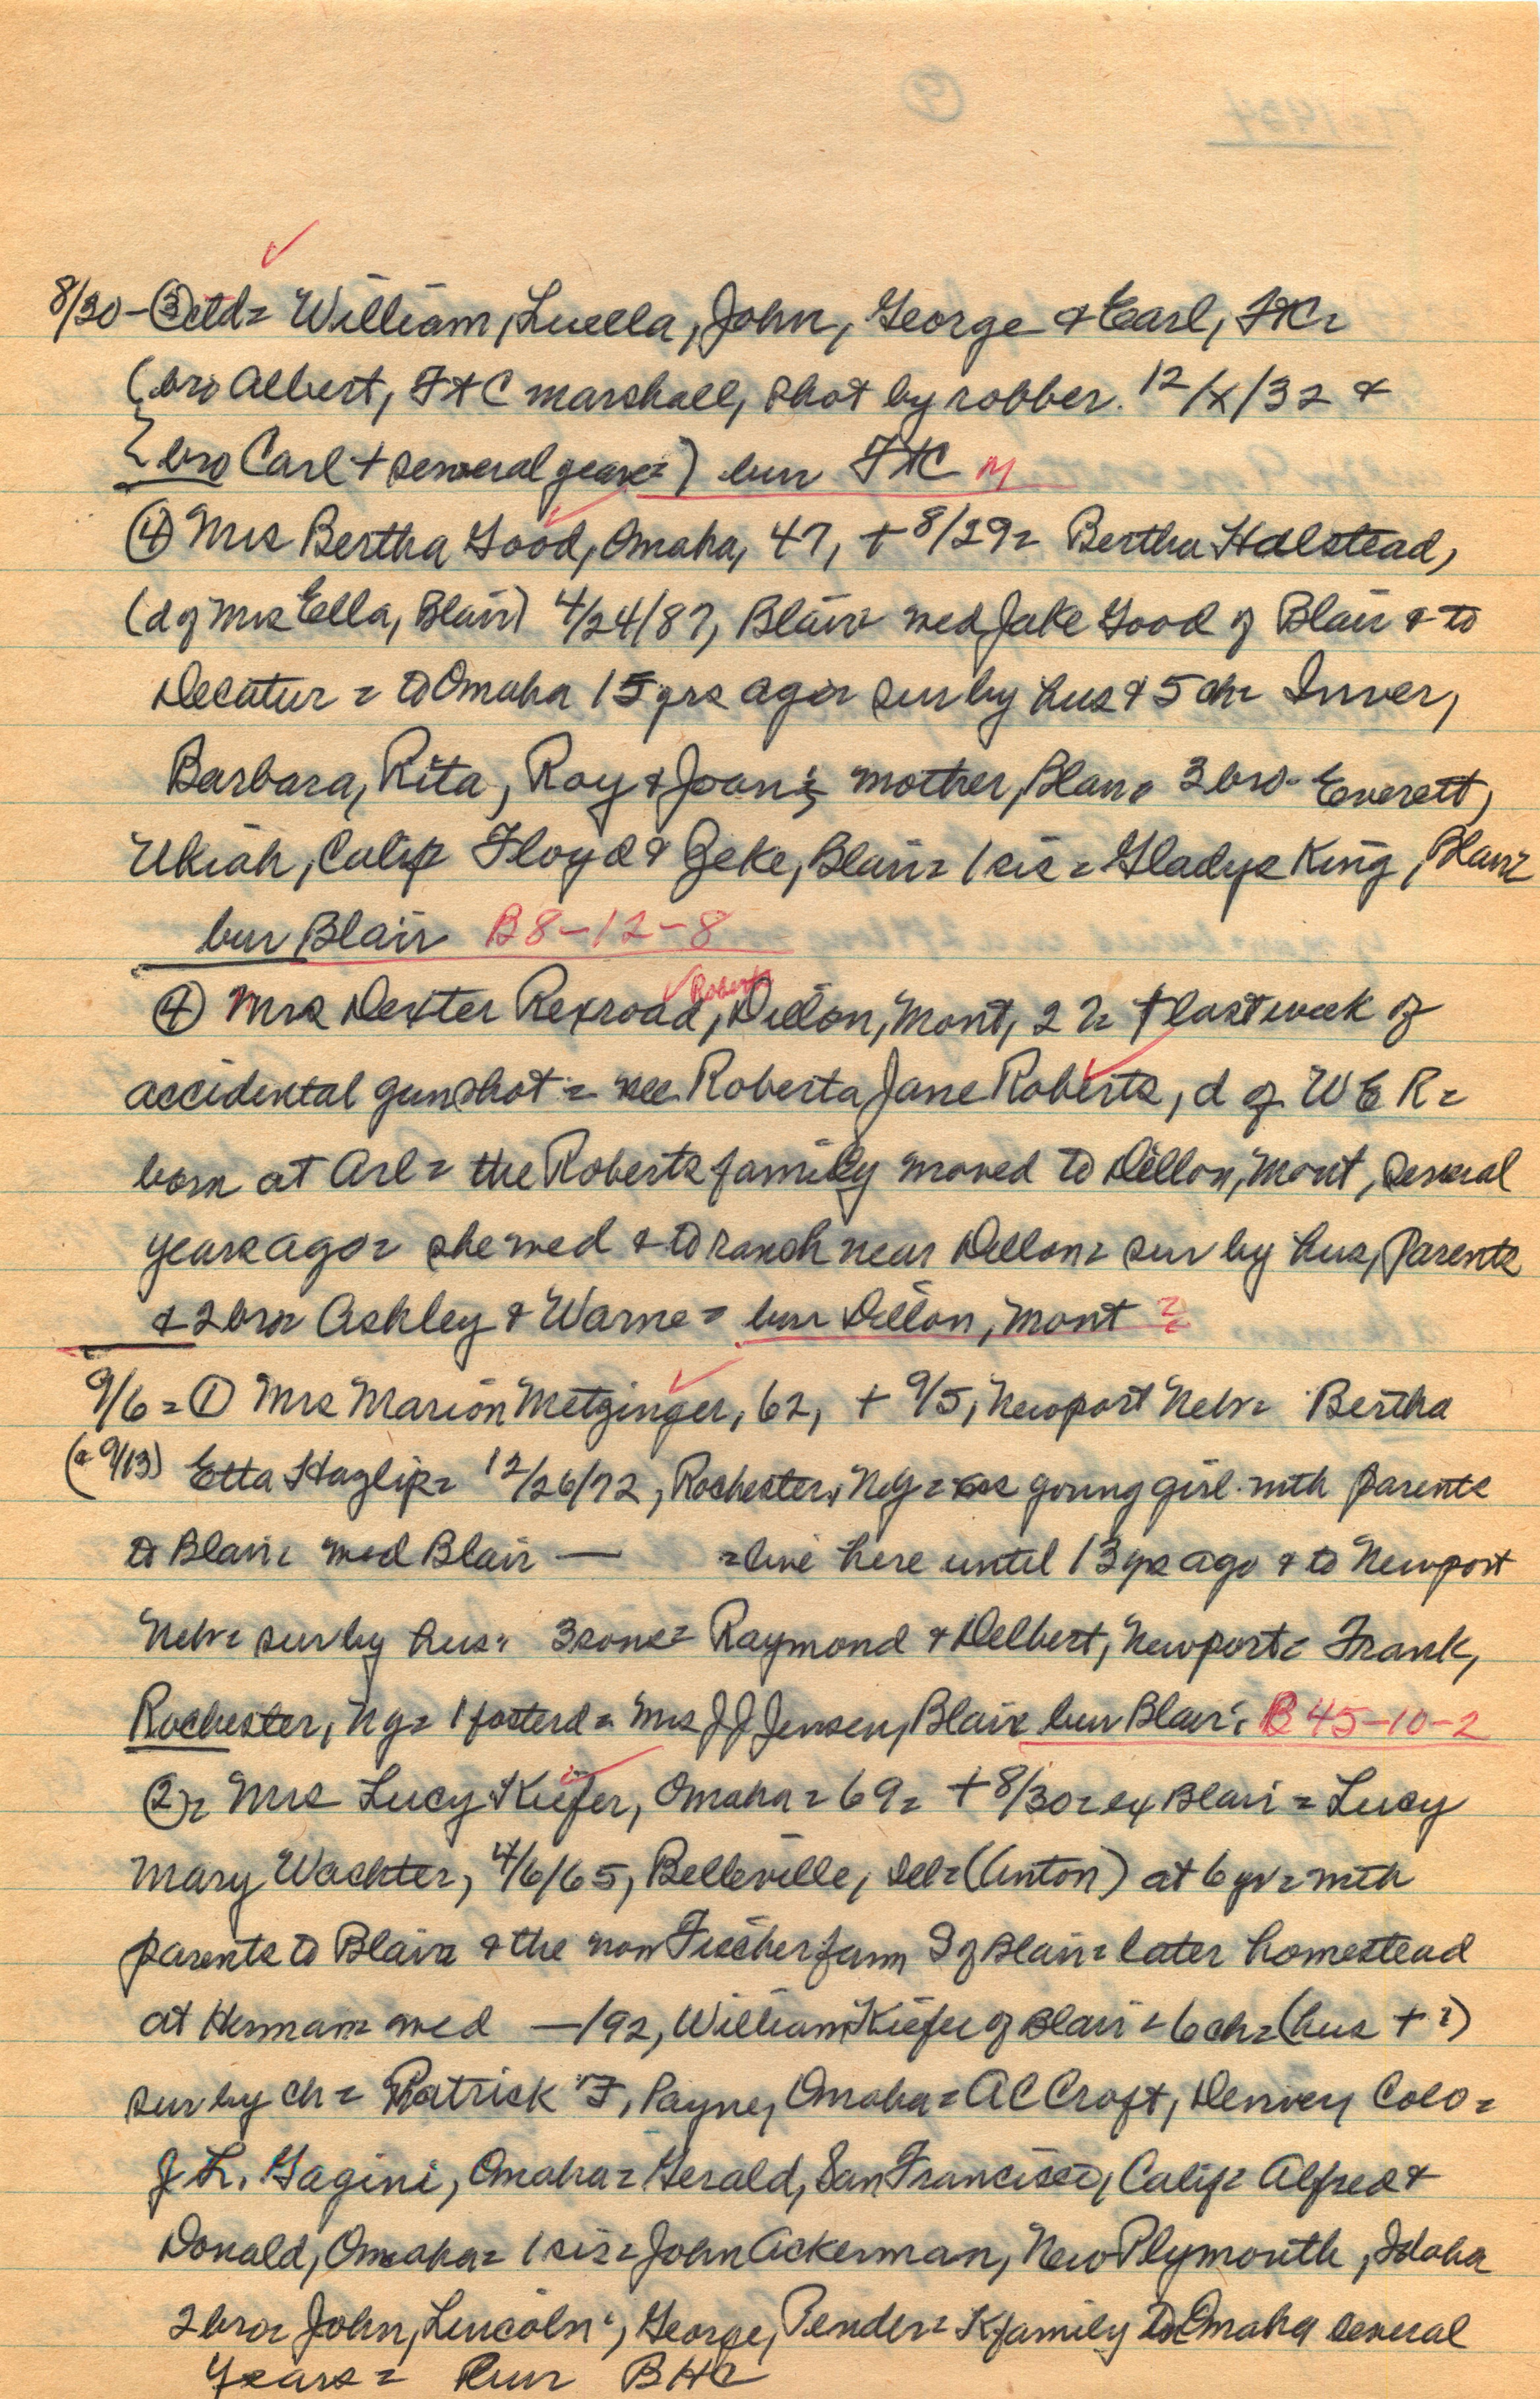 8/30 - ③ ctd= William, Luella, John, George & Earl, FtC=
(bro Albert, FtC marshall, shot by robber. 12/x/32 &
bro Carl + several years=) bur FtC M
④ Mrs Bertha Good, Omaha, 47, + 8/29= Bertha Halstead,
(d of Mrs Ella, Blair) 4/24/87, Blair= wed Jake Good of Blair & to
Decatur = to Omaha 15 yrs ago= sur by hus & 5 ch=
Barbara, Rita, Roy & Joan; mother, Blair= 3 bro- Everett,
Ukiah, Calif Floyd & Zeke, Blair= 1 sis = Gladys King, Blair=
bur Blair B8-12-8
Roberts
④ Mrs Dexter Rexroad, Dillon, Mont, 2 + last week of
accidental gunshot = nee Roberta Jane Roberts, d of W E R=
born at Arl= the Roberts family moved to Dillon, Mont, several
years ago= she wed & to ranch near Dillon= sur by hus, parents
& 2 bro= Ashley & Warne= bur Dillon, Mont ?
9/6 = ① Mrs Marion Metzinger, 62, + 9/5, Newport Nebr= Bertha
(& 9/13) Etta Hazlip= 12/26/72, Rochester, NY= as young girl with parents
to Blair= wed Blair — =live here until 13 yrs ago & to Newport
Nebr= sur by hus= 3 sons= Raymond & Delbert, Newport= Frank,
Rochester, Ny= 1 foster d= Mrs J J Jensen, Blair bur Blair= B 45-10-2
②= Mrs Lucy Kiefer, Omaha= 69= + 8/30= ex Blair= Lucy
Mary Wachter, 4/6/65, Belleville, (Anton) at 6 yr= with
parents to Blair= & the now Fischer farm S of Blair= later homestead
at Herman= wed —/92, William Kiefer of Blair= 6 ch= (hus + ?)
sur by ch= Patrick F, Payne, Omaha= A C Croft, Denver, Colo=
J L. Gagini, Omaha= Gerald, San Francisco, Calif= Alfred &
Donald, Omaha= 1 sis= John Ackerman, New Plymouth, Idaho
2 bro= John, Lincoln; George, Pender= K family to Omaha several
years= bur BHC